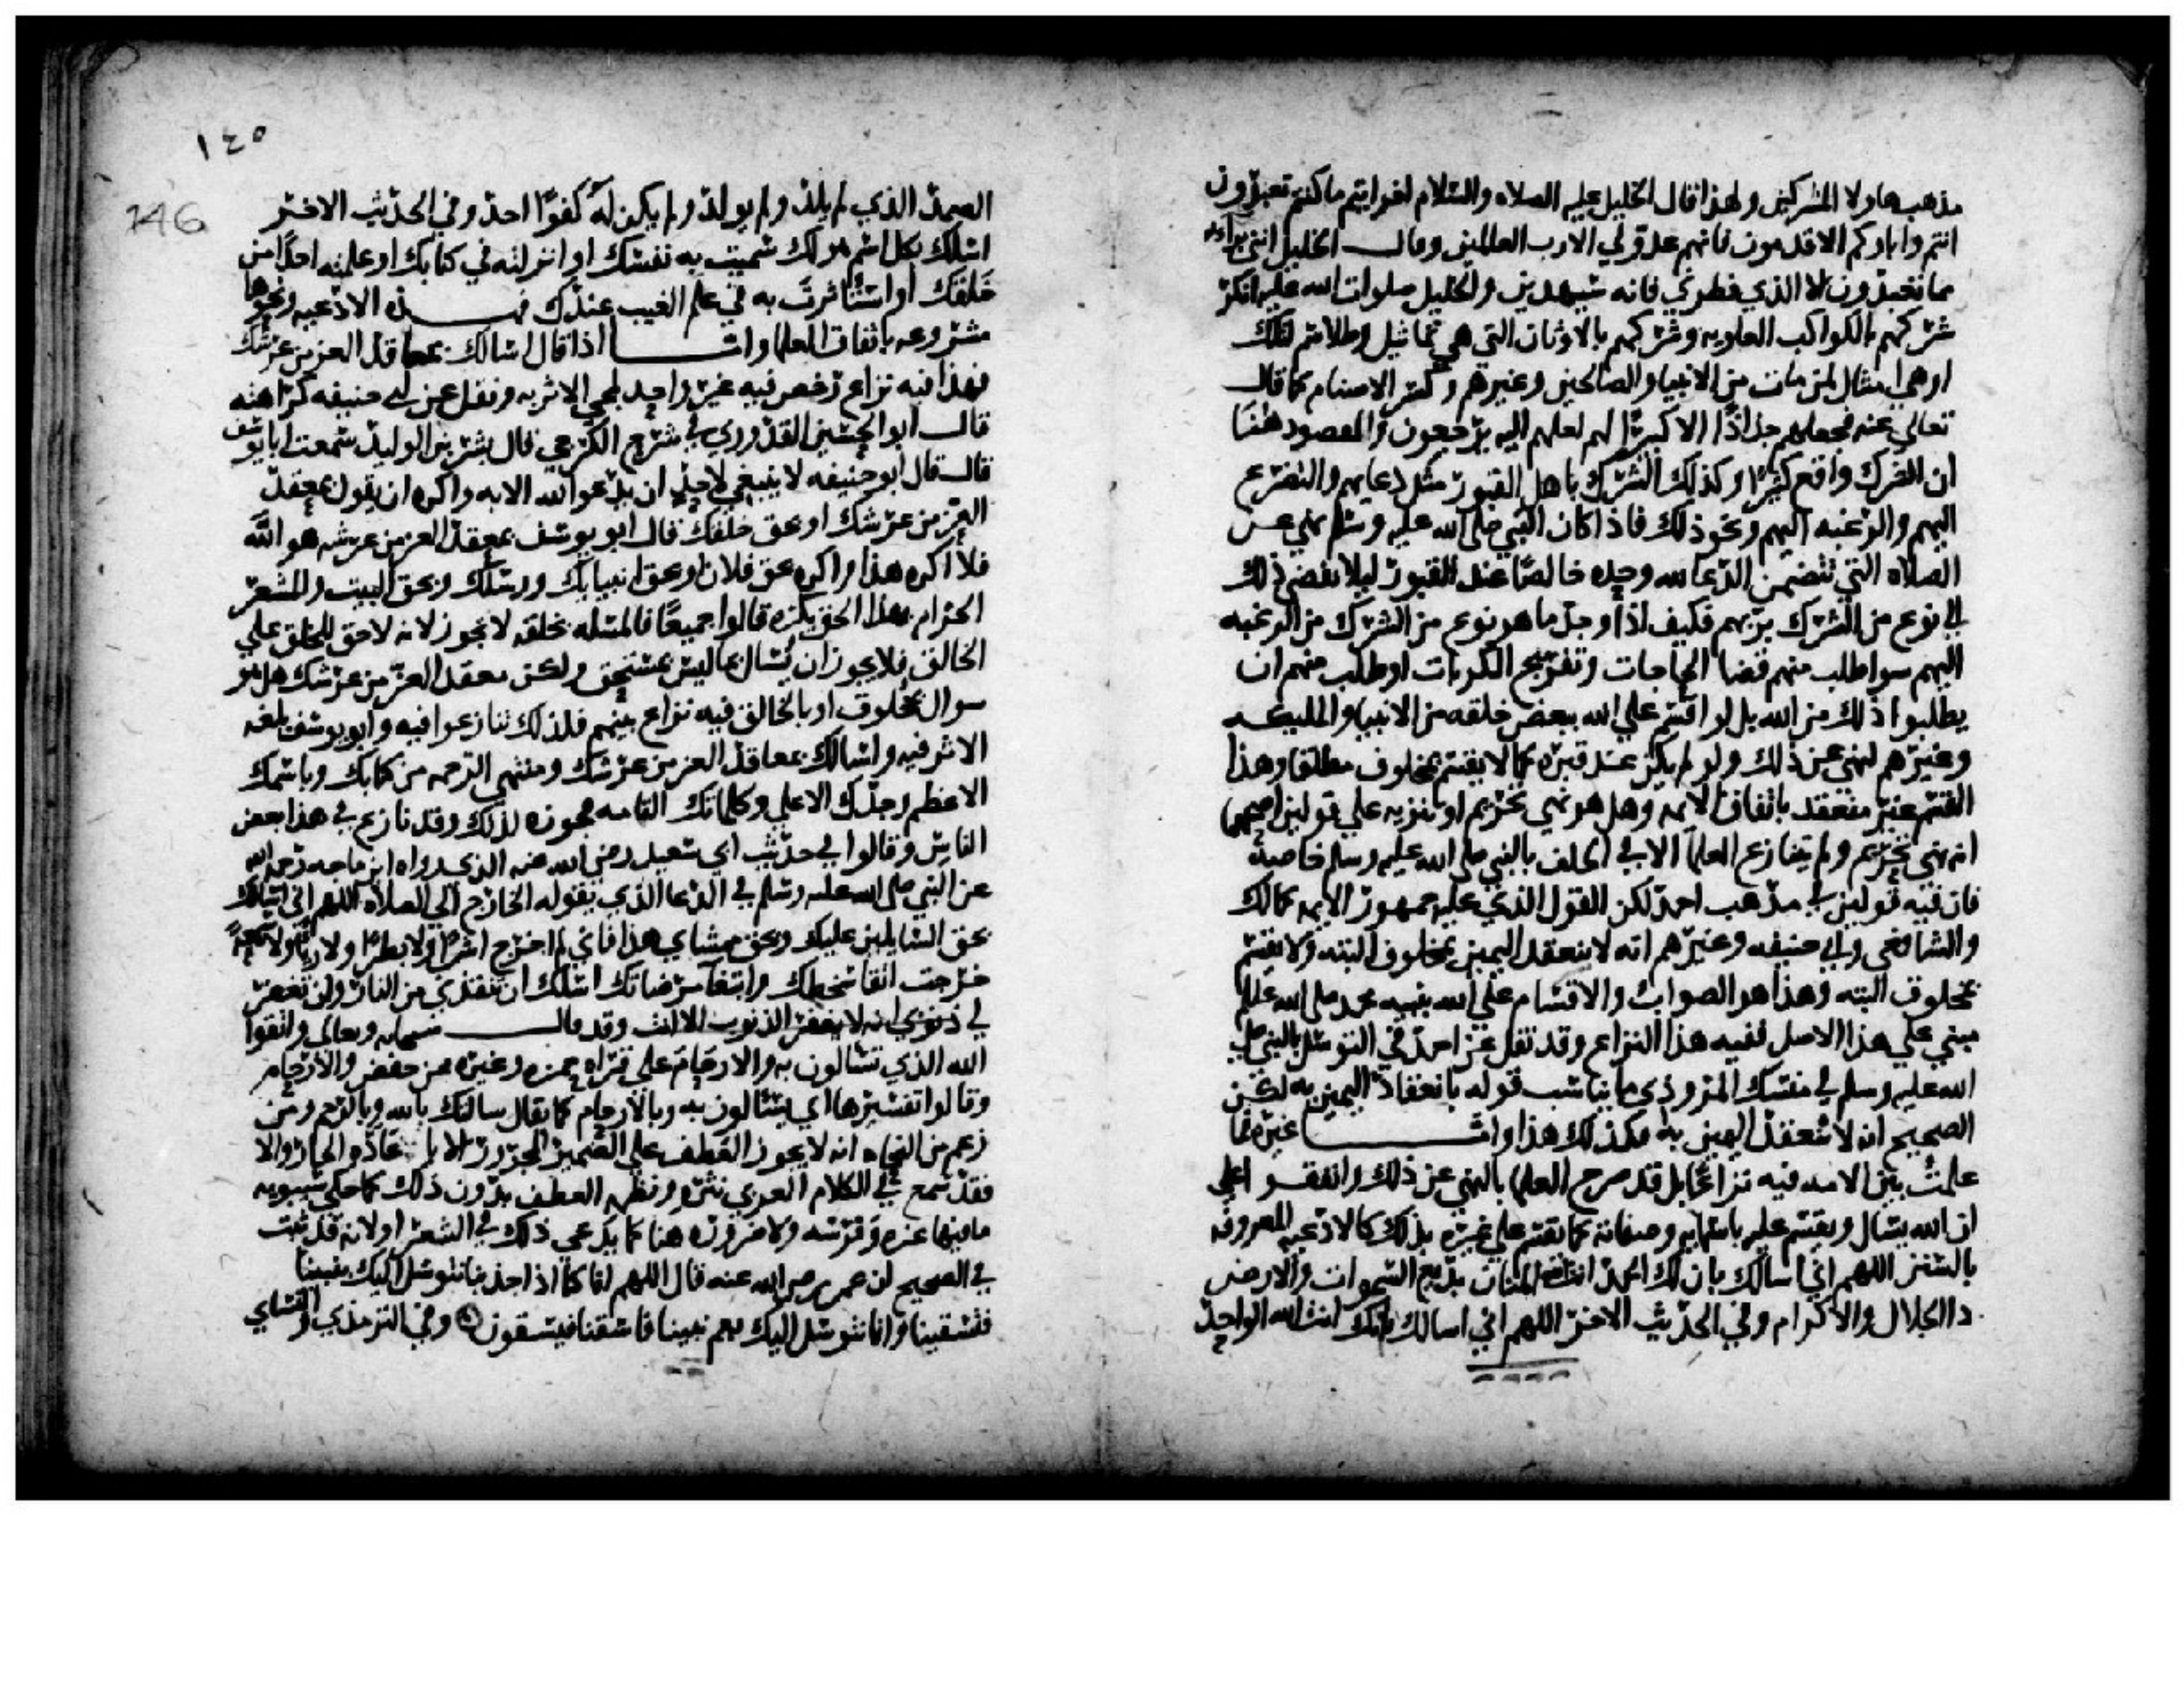 مذهب هاولا المشركين ولهذا قال الخليل عليه الصلاه والسلام افرايتم ما كنتم تعبدون
انتم واباوكم الاقدمون فانهم عدو لي الا رب العالمين وقال الخليل انني براء
مما تعبدون الا الذي فطرني فانه سيهدين والخليل صلوات الله عليه انكر
شركهم بالكواكب العلويه وشركهم بالاوثان التي هي تماثيل وطلاسم لتلك
او هي امثال لمن مات من الانبيا والصالحين وغيرهم وكسر الاصنام كما قال
تعالي عنه فجعلهم جذاذًا الا كبيرًا لهم لعلهم اليه يرجعون والمقصود هنا
ان الشرك واقع كثيرًا وكذلك الشرك باهل القبور مثل دعايهم والتضرع
اليهم والرغبه اليهم ونحو ذلك فاذا كان النبي صلى الله عليه وسلم نهي عن
الصلاه التي تتضمن الدعا لله وحده خالصًا عند القبور ليلا يفضي ذلك
الي نوع من الشرك بربهم فكيف اذا وجد ما هو نوع من الشرك من الرغبه
اليهم سوا طلب منهم قضا الحاجات وتفريج الكربات او طلب منهم ان
يطلبوا ذلك من الله بل لو اقسم علي الله ببعض خلقه من الانبيا والمليكه
وغيرهم لنهي عن ذلك ولو لم يكن عند قبره كما لا يقسم بمخلوف مطلقا وهذا
القسم غير منعقد باتفاق الايمه وهل هو نهي تحريم او تنزيه علي قولين اصحهما
انه نهي تحريم ولم يتنازع العلما الا في الحلف بالنبي صلى الله عليه وسلم خاصة
فان فيه قولين في مذهب احمد لكن القول الذي عليه جمهور الايمه كمالك
والشافعي وابي حنيفه وغيرهم انه لا ينعقد اليمين بمخلوق البته ولا يقسم
بمخلوق البته وهذا هو الصواب والاقسام علي الله بنبيه محمد صلى الله عليه
مبني علي هذا الاصل ففيه هذا النزاع وقد نقل عن احمد في التوسل بالنبي صلى
الله عليه وسلم في منسك المروذي ما يناسب قوله بانعقاد اليمين به لكن
الصحيح انه لا تنعقد اليمين به فكذلك هذا واما غيره فما
علمت بين الامه فيه نزاعًا بل قد صرح العلما بالنهي عن ذلك واتفقوا على
ان الله يسال ويقسم عليه باسمايه وصفاته كما يقسم علي غيره بذلك كالادعيه المعروفه
بالسنن اللهم اني اسالك بان لك الحمد انت المنان بديع السموات والارض
ذا الجلال والاكرام وفي الحديث الاخر اللهم اني اسالك بانك انت الله الواحد
١٤٥
146
الصمد الذي لم يلد ولم يولد ولم يكن له كفوًا احد وفي الحديث الاخر
اسلك بكل اسم هو لك سميت به نفسك او انزلته في كتابك او علمته احدًا من
خلقك او استاثرت به في علم الغيب عندك فهذه الادعيه ونحوها
مشروعه باتفاق العلما واما اذا قال اسالك بمعاقد العز من عرشك
فهذا فيه نزاع رخص فيه غير واحد لمجي الاثر به ونقل عن ابي حنيفه كراهته
قال ابو الحسين القدوري في شرح الكرخي قال بشر بن الوليد سمعت ابا يوسف
قال قال ابو حنيفه لا ينبغي لاحد ان يدعو الله الا به واكره ان يقول بمعقد
العز من عرشك او بحق خلقك قال ابو يوسف بمعقد العز من عرشه هو الله
فلا اكره هذا واكره بحق فلان او بحق انبيايك ورسلك وبحق البيت والمشعر
الحرام بهذا الحق يكره قالوا جميعًا فالمسله بخلقه لا تجوز لانه لا حق للخلق علي
الخالق فلا يجوز ان يسال بما ليس بمستحق ولكن معقد العز من عرشك هل هو
سوال بمخلوف او بالخالق فيه نزاع بينهم فلذلك تنازعوا فيه وابو يوسف بلغه
الاثر فيه واسالك بمعاقد العز من عرشك ومنتهي الرحمه من كتابك وباسمك
الاعظم وجدك الاعلي وكلماتك التامه فجوزه لذلك وقد نازع في هذا بعض
الناس وقالوا في حديث ابي سعيد رضي الله عنه الذي رواه ابن ماجه رحمه الله
عن النبي صلى الله عليه وسلم في الدعا الذي يقوله الخارج الي الصلاه اللهم اني اسالك
بحق السايلين عليك وبحق ممشاي هذا فاني لم اخرج اشرًا ولا بطرًا ولا رياً ولا سمعةً
خرجت اتقا سخطك وابتغا مرضاتك اسلك ان تنقذني من النار وان تغفر
لي ذنوبي انه لا يغفر الذنوب الا انت وقد قال سبحانه وتعالى واتقوا
الله الذي تسالون به والارحام علي قراه حمزه وغيره ممن خفض والارحام
وقالوا تفسيرها اي يتسالون به وبالارحام كما يقال سالتك بالله وبالرحم ومن
زعم من النحاه انه لا يجوز العطف علي الضمير المجرور الا باعاده الجار والا
فقد سمع في الكلام العربي نثره ونظمه العطف بدون ذلك كما حكي سيبويه
ما فيها غيره وفرسه ولا ضروره هنا كما يدعي ذلك في الشعر اولانه قد ثبت
في الصحيح ان عمر رضي الله عنه قال اللهم انا كنا اذا اجدبنا نتوسل اليك بنبينا
فتسقينا وانا نتوسل اليك بعم نبينا فاسقنا فيسقون وفي الترمذي والنساي